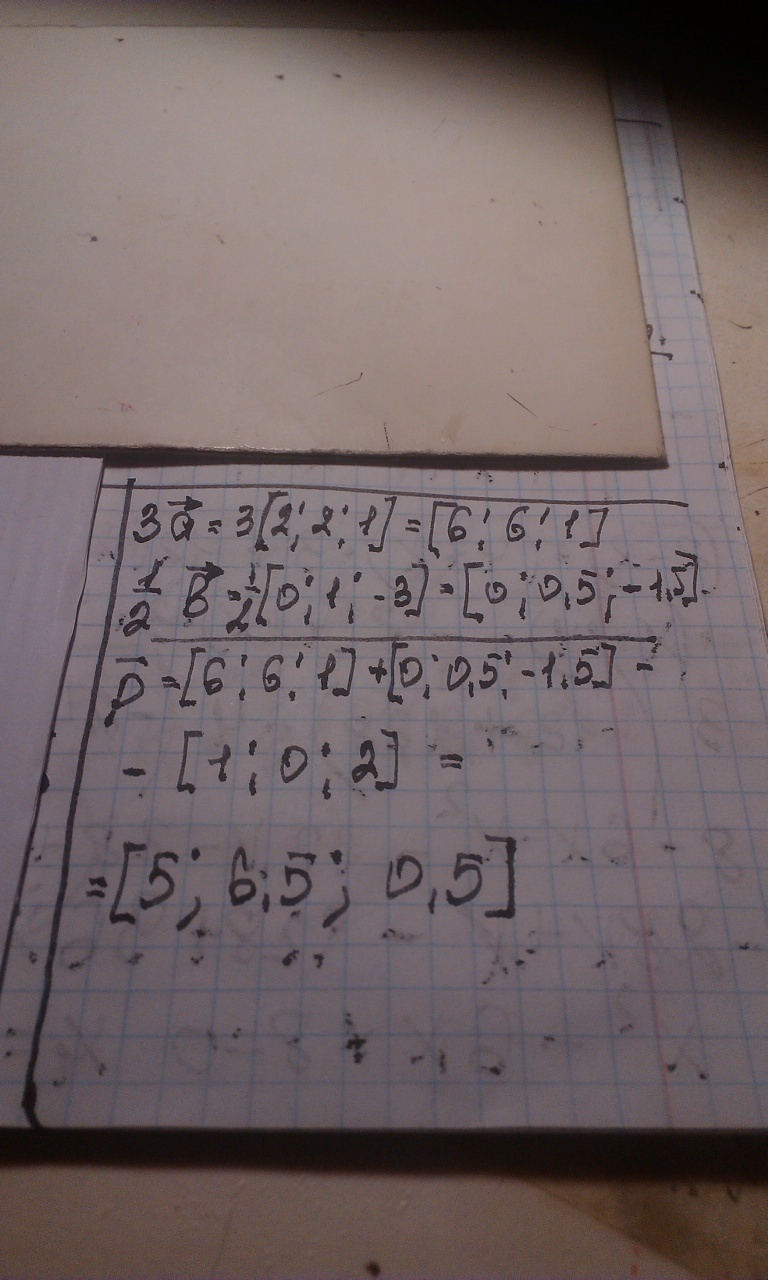 3a⃗ = 3[2; 2; 1] = [6; 6; 1]
1/2 b⃗ = 1/2[0; 1; -3] = [0; 0,5; -1,5]
p⃗ = [6; 6; 1] + [0; 0,5; -1,5] -
- [1; 0; 2] =
= [5; 6,5; 0,5]